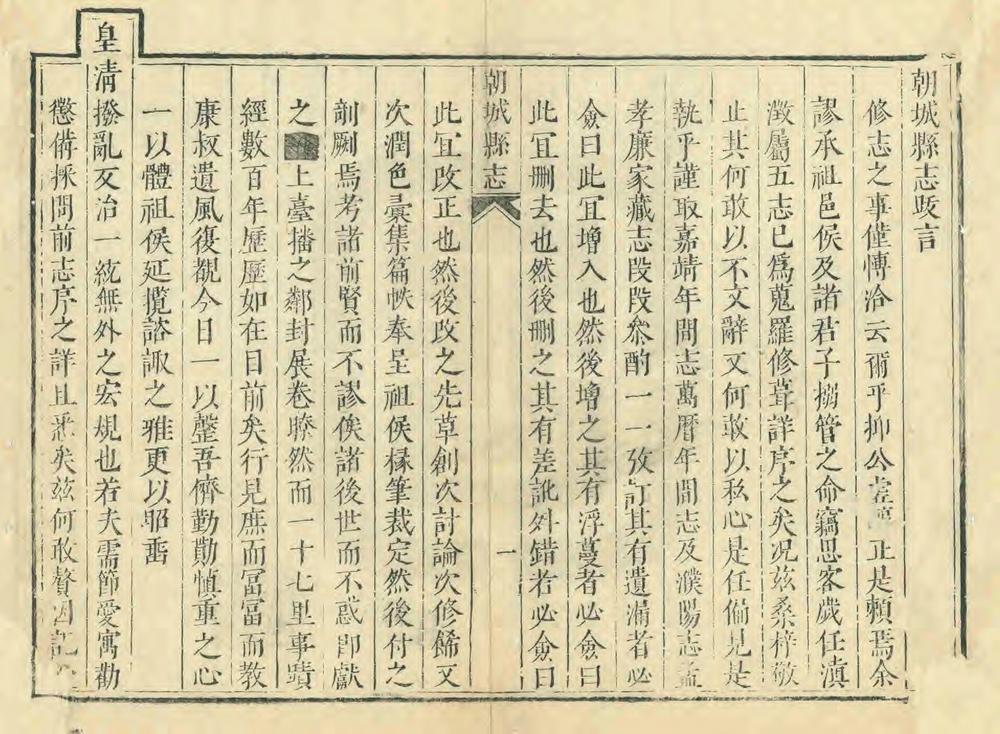 朝城縣志跋言
修志之事僅愽洽云爾乎抑公 正是頼焉余
謬承祖邑侯及諸君子搦管之命竊思客歲任滇
澂屬五志已爲蒐羅修葺詳序之矣况兹桑梓敬
止其何敢以不文辭又何敢以私心是任偏見是
執乎謹取嘉靖年間志萬曆年間志及濮陽志孟
孝廉家藏志段段叅酌一一攷訂其有遺漏者必
僉曰此宜增入也然後增之其有浮蔓者必僉曰
此宜删去也然後删之其有差訛舛錯者必僉曰
朝城縣志
一
此宜改正也然後改之先草創次討論次修餙又
次潤色彚集篇帙奉呈祖侯椽筆裁定然後付之
剞劂焉考諸前賢而不謬俟諸後世而不惑卽獻
之上臺播之鄰封展卷瞭然而一十七里事蹟
經數百年歷歷如在目前矣行見庶而冨冨而教
康叔遺風復覩今日一以罄吾儕勤勩慎重之心
一以體祖侯延攬諮諏之雅更以昭我
皇清撥亂又治一統無外之宏規也若夫需節愛寓勸
懲備採問前志序之詳且悉矣兹何敢贅因記